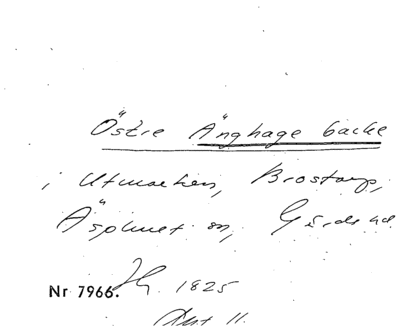 Östre Änghage backe
i Utmarken, Brostorp,
Äsphult sn, Gärds hd.
Nr 7966. 1825
Akt 11.